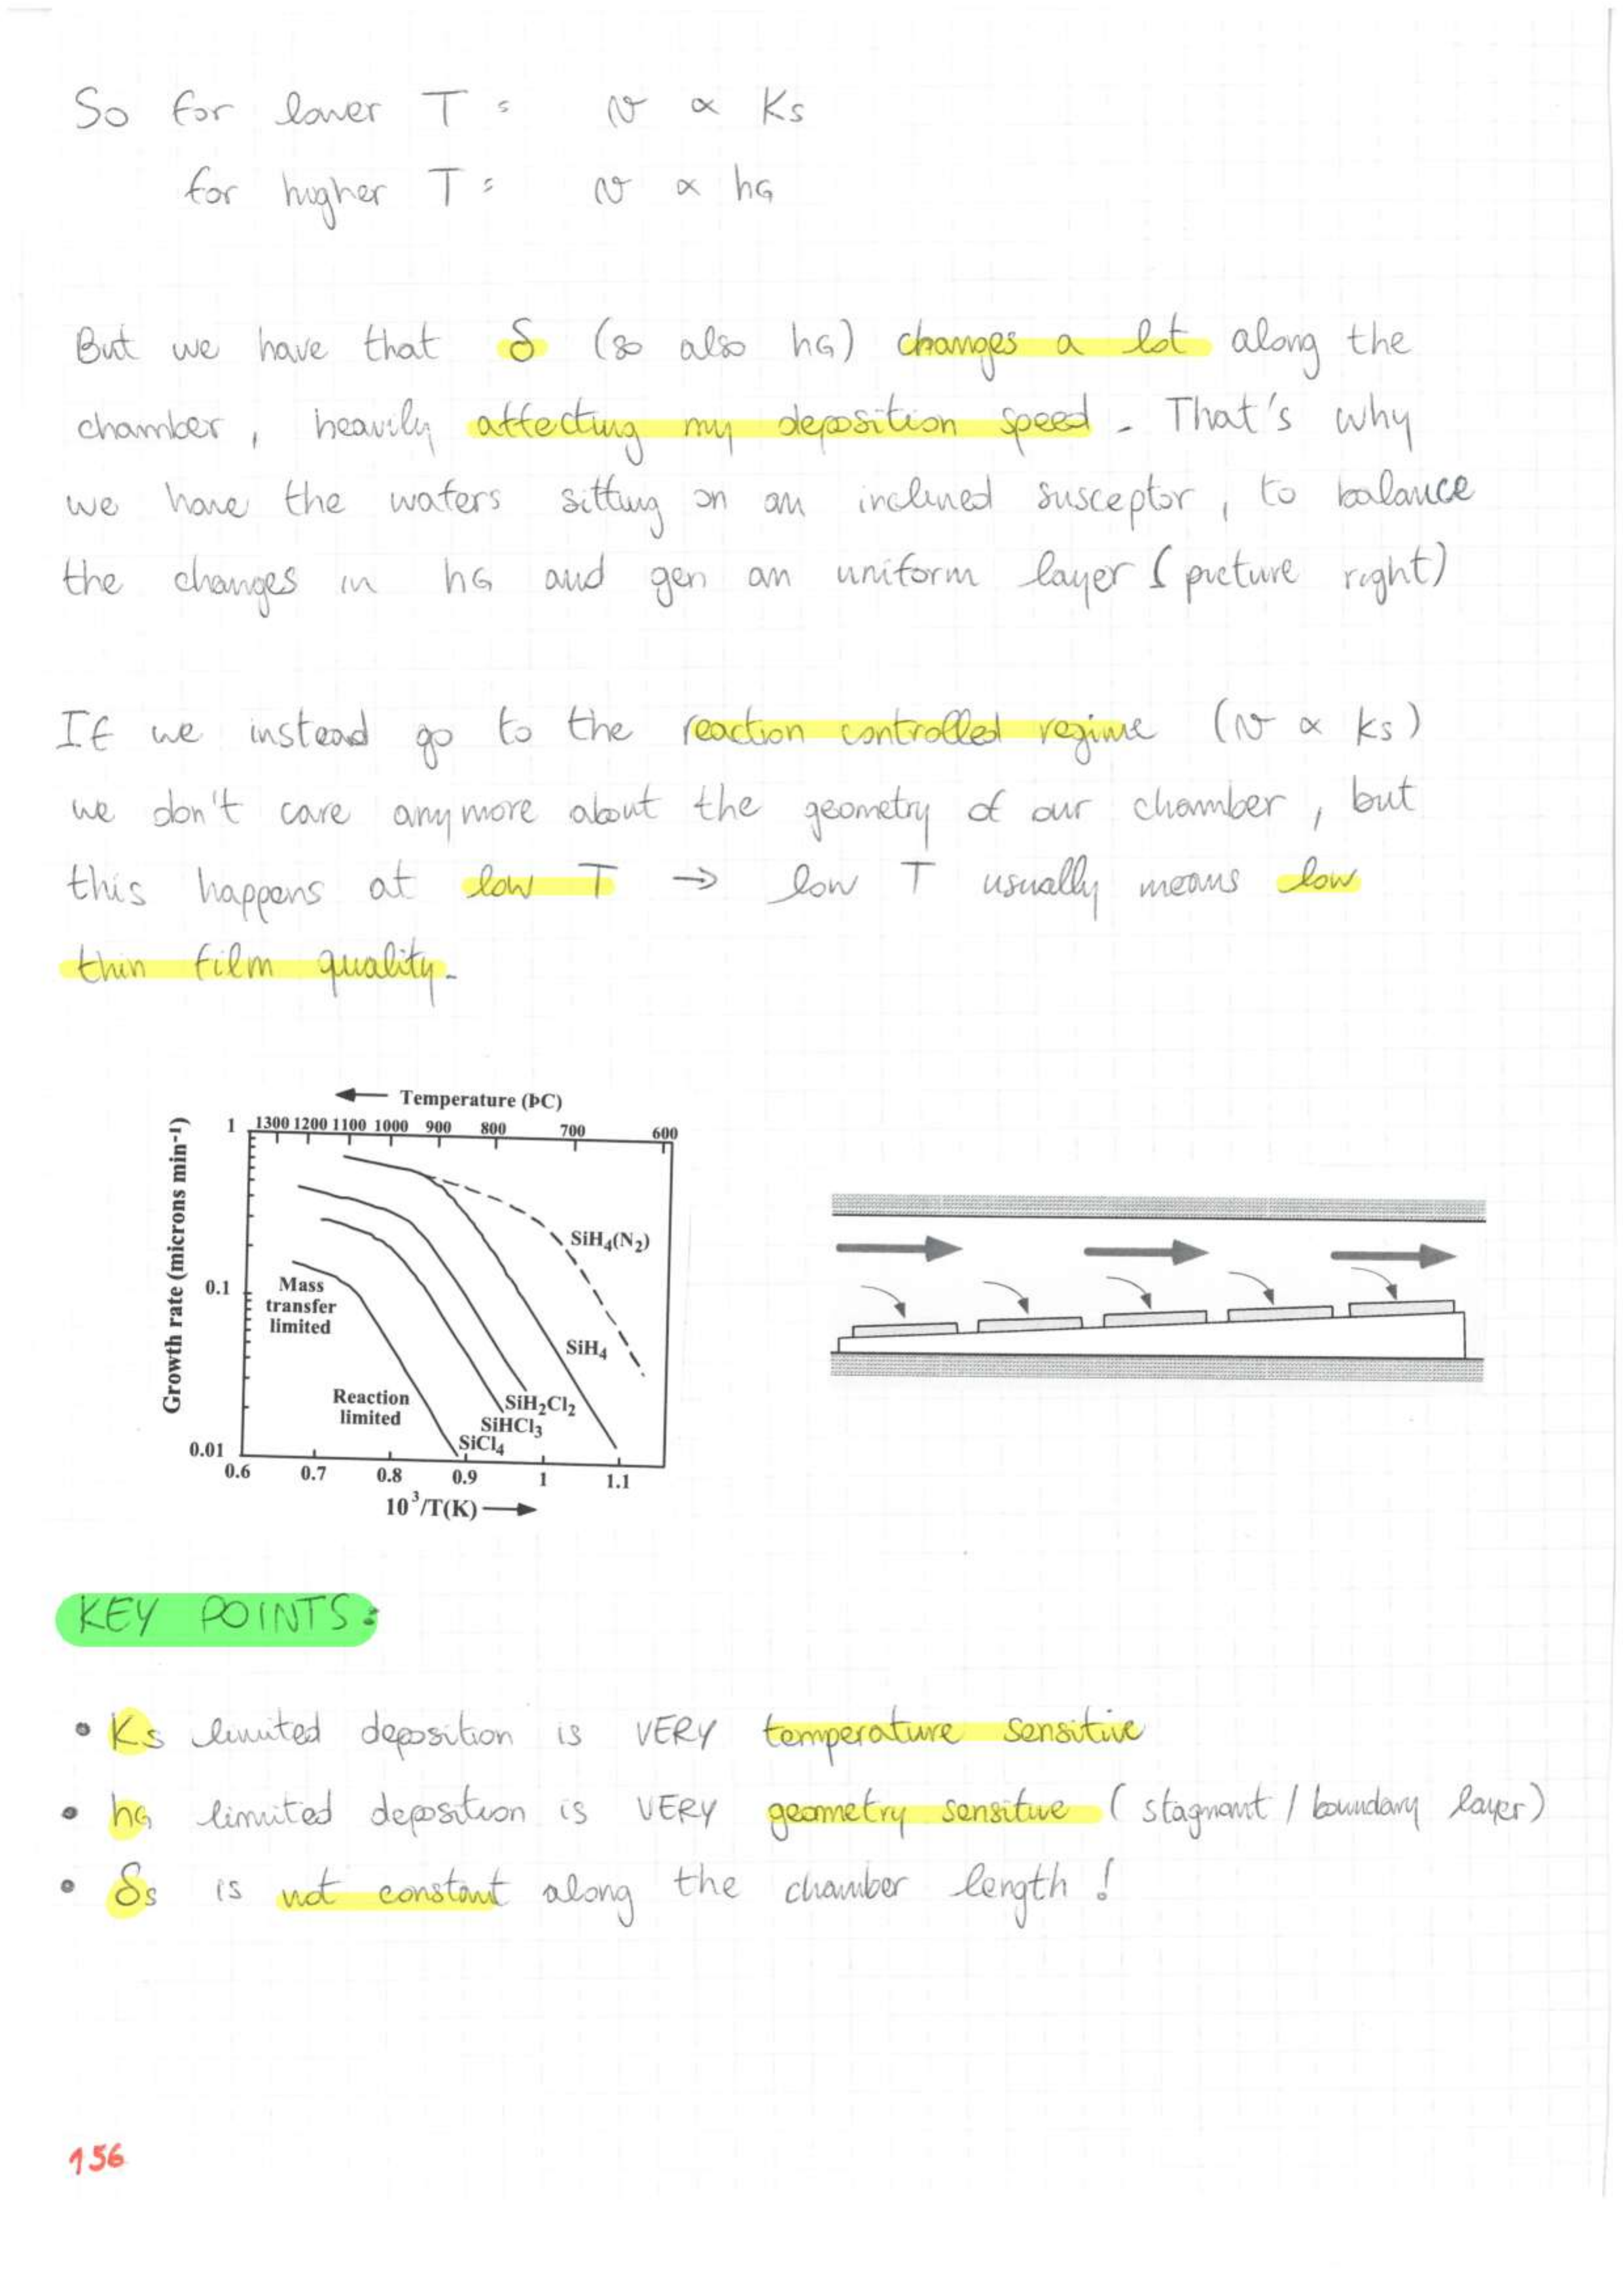 So for lower T : v ∝ Ks
for higher T : v ∝ hG
But we have that δ (so also hG) changes a lot along the
chamber, heavily affecting my deposition speed. That's why
we have the wafers sitting on an inclined susceptor, to balance
the changes in hG and gen an uniform layer (picture right)
If we instead go to the reaction controlled regime (v ∝ Ks)
we don't care anymore about the geometry of our chamber, but
this happens at low T → low T usually means low
thin film quality.
Temperature (ÞC)
1300 1200 1100 1000 900 800 700 600
Growth rate (microns min⁻¹)
1
0.1
0.01
SiH₄(N₂)
Mass
transfer
limited
SiH₄
Reaction
limited
SiH₂Cl₂
SiHCl₃
SiCl₄
0.6 0.7 0.8 0.9 1 1.1
10³/T(K)
KEY POINTS:
• Ks limited deposition is VERY temperature sensitive
• hG limited deposition is VERY geometry sensitive (stagnant / boundary layer)
• δs is not constant along the chamber length!
156